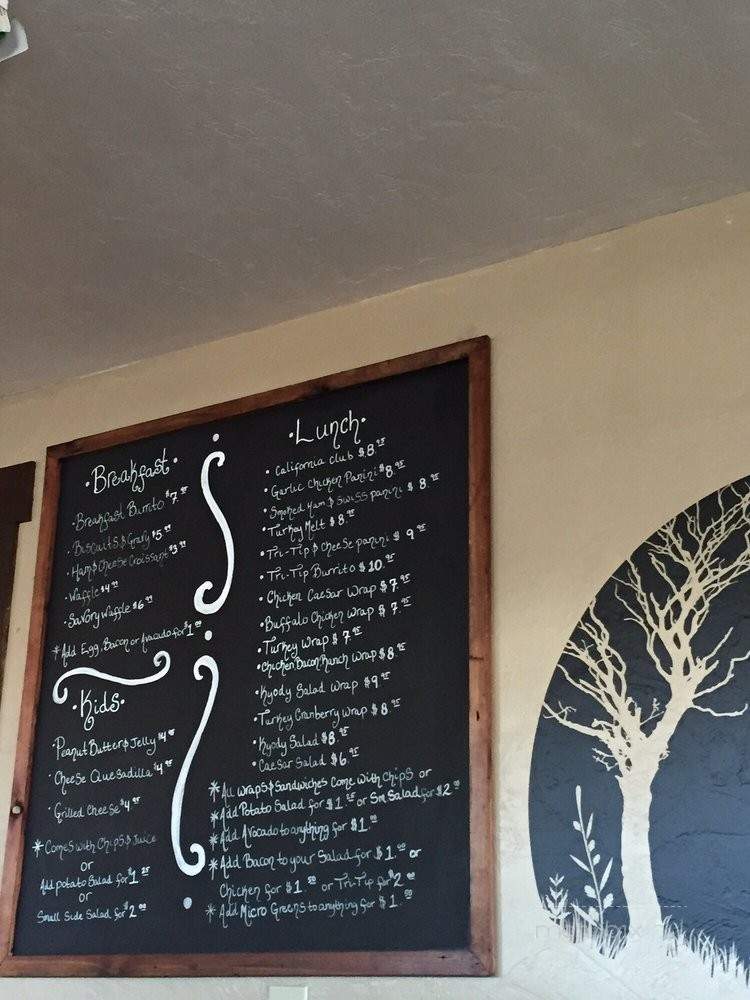 ·Breakfast·
·Breakfast Burrito $7.
·Biscuits & Gravy $5.
·Ham & Cheese Croissant $3
·Waffle $4
·Savory Waffle $6
*Add Egg, Bacon or Avocado for $1
·Kids·
·Peanut Butter & Jelly $4
·Cheese Quesadilla $4
·Grilled Cheese $4.
*Comes with Chips & Juice
or
Add potato Salad for $1.
or
Small Side Salad for $2
·Lunch·
·California Club $8.
·Garlic Chicken Panini $8.
·Smoked Ham & Swiss panini $8.
·Turkey Melt $8.
·Tri-Tip & Cheese panini $9
·Tri-Tip Burrito $10.
·Chicken Caesar Wrap $7.
·Buffalo Chicken Wrap $7.
·Turkey Wrap $7
·Chicken Bacon Ranch Wrap $8.
·Kyody Salad Wrap $9
·Turkey Cranberry Wrap $8.
·Kyody Salad $8.
·Caesar Salad $6.
*All Wraps & Sandwiches Come with Chips or
*Add Potato Salad for $1. or Sm Salad for $2
*Add Avocado to anything for $1.
*Add Bacon to your Salad for $1. or
Chicken for $1. or Tri-Tip for $2
*Add Micro Greens to anything for $1.